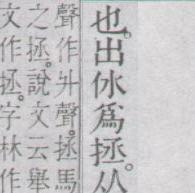 也。出㲻爲拯。从
聲作升聲。拯馬
之拯。說文云舉
文作拯。字林作